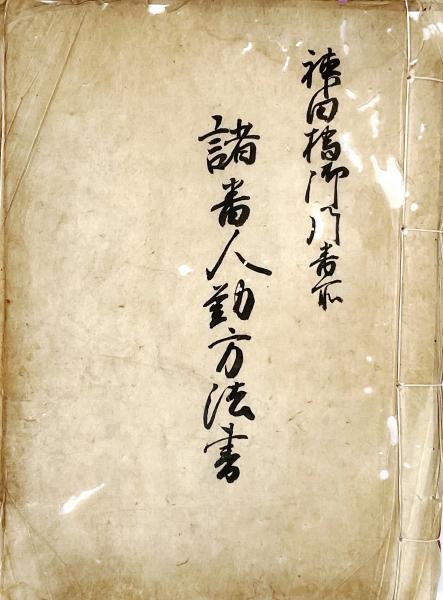 神田橋御門番所
諸番人勤方法書